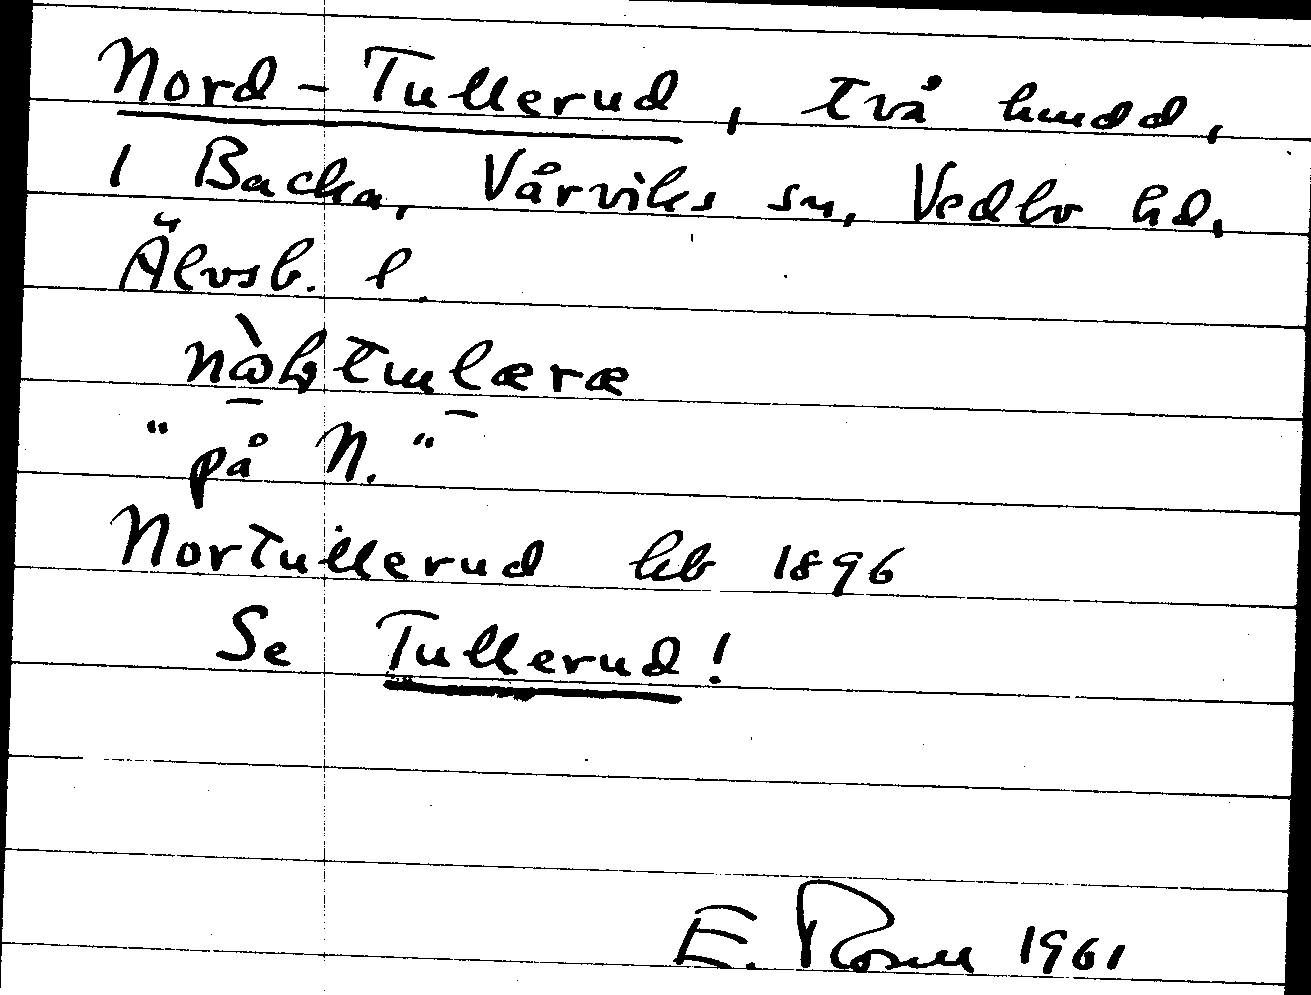 Nord-Tullerud, två hmdd,
1 Backa, Vårviks sn, Vedbo hd,
Älvsb. l.
"på N."
Nortullerud kb 1896
Se Tullerud!
E. Rosell 1961